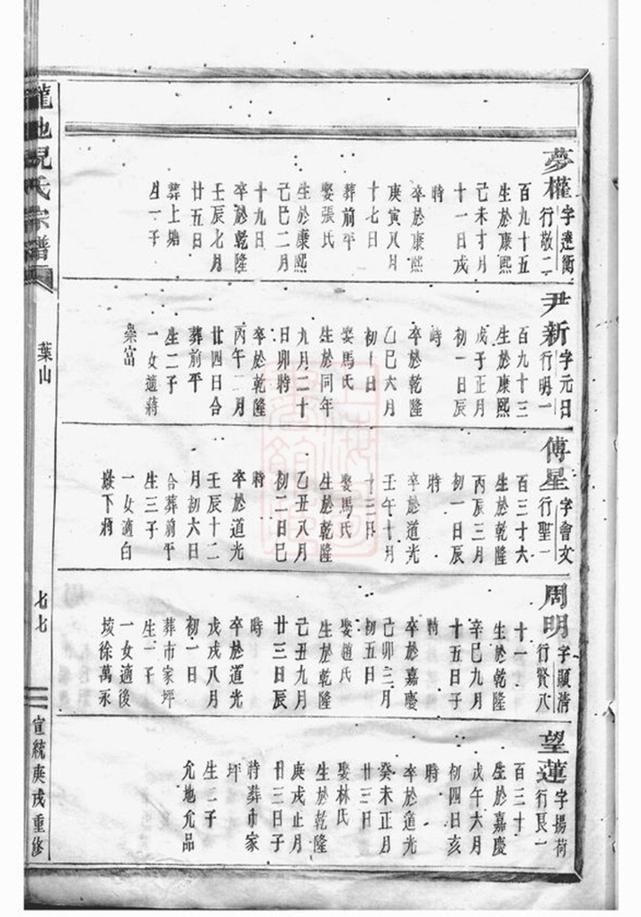 夢權
字達衡
行敬二
百九十五
生於康熙
己未十月
十一日戌
時
卒於康熙
庚寅八月
十七日
葬前平
娶張氏
生於康熙
己巳二月
十九日
卒於乾隆
壬辰七月
廿五日
葬上塘
生一子
尹新
字元日
行明一
百九十三
生於康熙
戊子正月
初一日辰
時
卒於乾隆
乙巳六月
初一日
娶馬氏
生於同年
九月二十
日卯時
卒於乾隆
丙午二月
廿四日合
葬前平
生二子
一女適蔣
榮富
傅星
字會文
行聖一
百三十六
生於乾隆
丙辰三月
初一日辰
時
卒於道光
壬午十月
十三日
娶馬氏
生於乾隆
乙丑八月
初二日巳
時
卒於道光
壬辰十二
月初六日
合葬前平
生三子
一女適白
下
周明
字顯清
行賢八
十一
生於乾隆
辛巳九月
十五日子
時
卒於嘉慶
己卯三月
初五日
娶趙氏
生於乾隆
己丑九月
廿三日辰
時
卒於道光
戊戌八月
初一日
葬市家坪
生一子
一女適後
坡徐萬永
望蓮
字揚荷
行良一
百三十
生於嘉慶
戊午六月
初四日亥
時
卒於道光
癸未正月
廿三日
娶林氏
生於乾隆
庚戌正月
廿三日子
時葬市家
坪
生二子
允地允品
龍池氏宗譜
葉山
七七
宣統庚戌重修